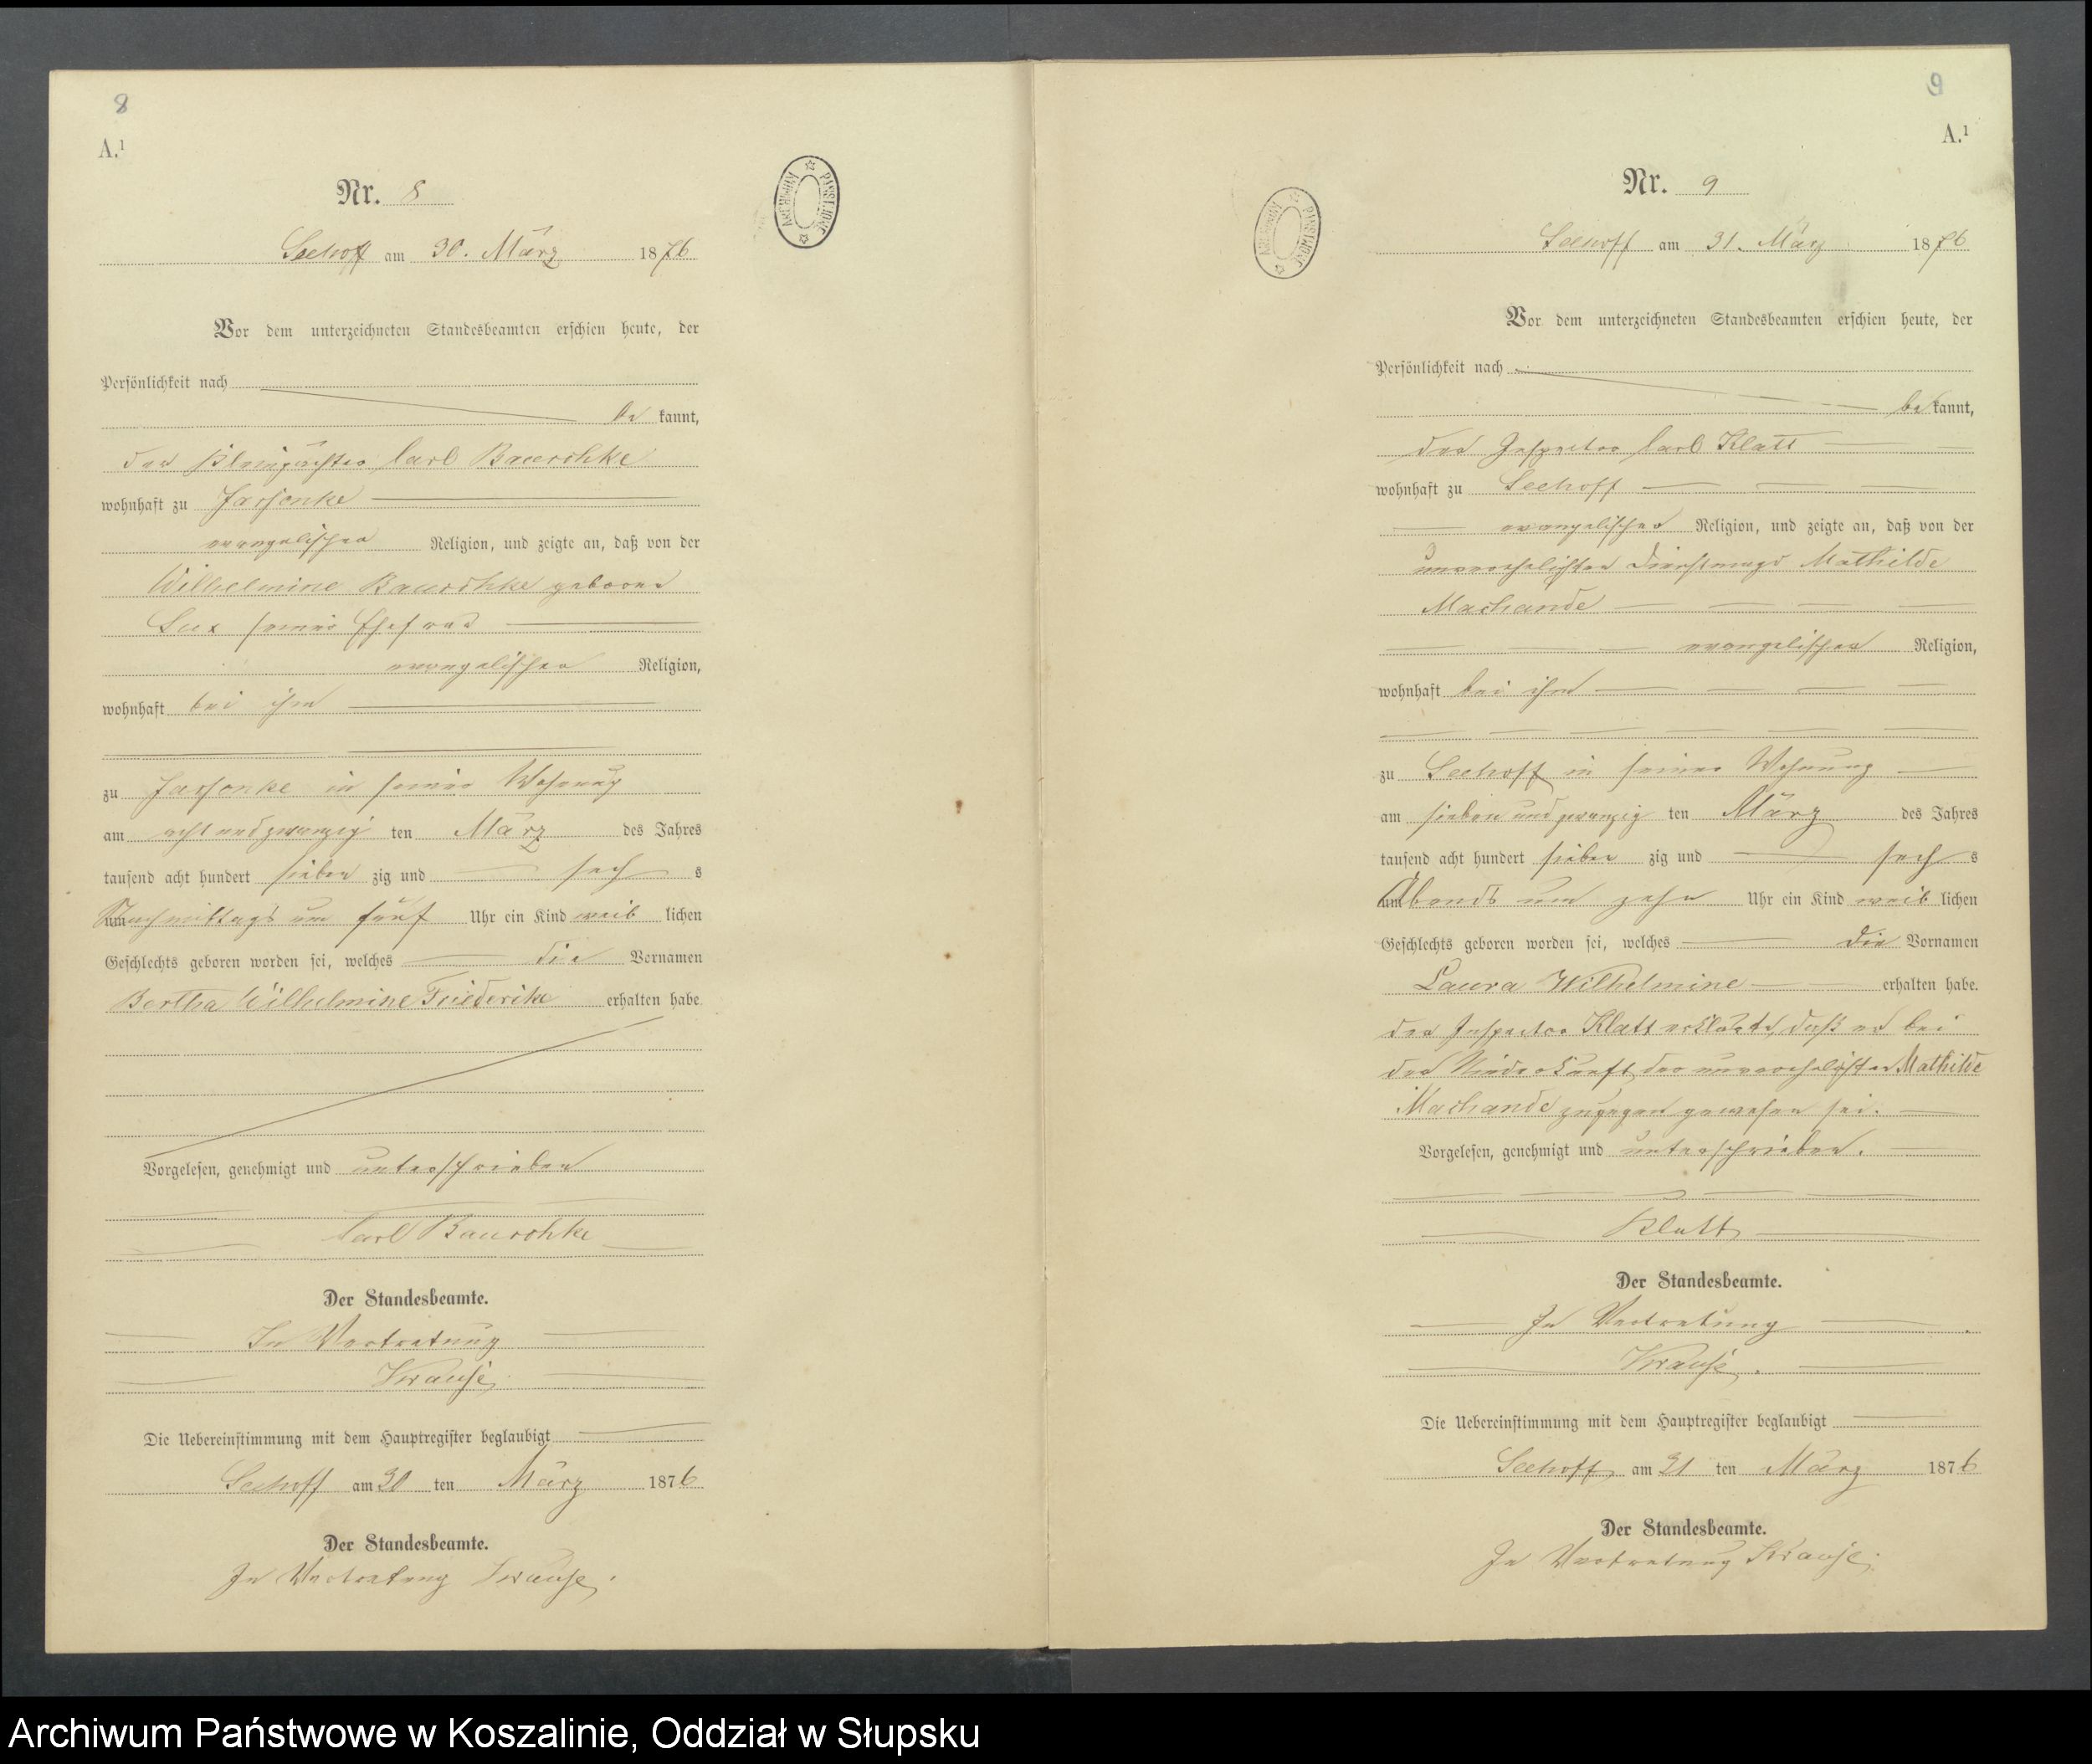 8
A.¹
Nr. 8
Seehoff am 30. März 1876
Vor dem unterzeichneten Standesbeamten erschien heute, der
Persönlichkeit nach
be kannt,
der Kleinpächter Carl Bauschke
wohnhaft zu Jassonke
evangelischer Religion, und zeigte an, daß von der
Wilhelmine Bauschke geborne
Lux seiner Ehefrau
evangelischer Religion,
wohnhaft bei ihm
zu Jassonke in seiner Wohnung
am acht und zwanzig ten März des Jahres
tausend acht hundert sieben zig und sech s
Nachmittags um fünf Uhr ein Kind weib lichen
Geschlechts geboren worden sei, welches die Vornamen
Bertha Wilhelmine Friederike erhalten habe.
Vorgelesen, genehmigt und unterschrieben
Carl Bauschke
Der Standesbeamte.
In Vertretung
Krause
Die Uebereinstimmung mit dem Hauptregister beglaubigt
Seehoff am 30 ten März 1876
Der Standesbeamte.
In Vertretung Krause.
ARCHIWUM PAŃSTWOWE
9
A.¹
Nr. 9
Seehoff am 31. März 1876
Vor dem unterzeichneten Standesbeamten erschien heute, der
Persönlichkeit nach
be kannt,
der Inspector Carl Klatt
wohnhaft zu Seehoff
evangelischer Religion, und zeigte an, daß von der
unverehelichten Dienstmagd Mathilde
Machande
evangelischer Religion,
wohnhaft bei ihm
zu Seehoff in seiner Wohnung
am sieben und zwanzig ten März des Jahres
tausend acht hundert sieben zig und sech s
Abends um zehn Uhr ein Kind weib lichen
Geschlechts geboren worden sei, welches die Vornamen
Laura Wilhelmine erhalten habe.
der Inspector Klatt erklärte, daß er bei
der Niederkunft der unverehelichten Mathilde
Machande zugegen gewesen sei.
Vorgelesen, genehmigt und unterschrieben.
Klatt
Der Standesbeamte.
In Vertretung
Krause.
Die Uebereinstimmung mit dem Hauptregister beglaubigt
Seehoff am 31 ten März 1876
Der Standesbeamte.
In Vertretung Krause.
ARCHIWUM PAŃSTWOWE
Archiwum Państwowe w Koszalinie, Oddział w Słupsku